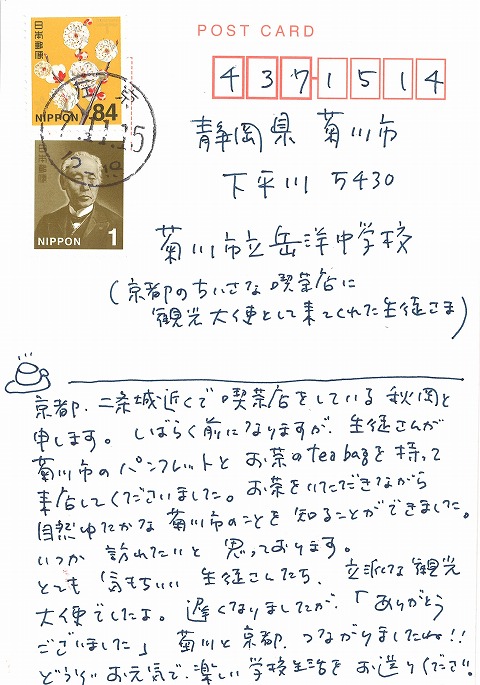 POST CARD
日本郵便
NIPPON 84
日本郵便
NIPPON 1
437-1514
静岡県 菊川市
下平川 5430
菊川市立岳洋中学校
(京都のちいさな喫茶店に
観光大使として来てくれた生徒さま)
京都、二条城近くで喫茶店をしている 秋岡と
申します。しばらく前になりますが、生徒さんが
菊川市のパンフレットと お茶のtea bagを持って
来店してくださいました。お茶をいただきながら
自然ゆたかな 菊川市のことを 知ることができました。
いつか 訪れたいと 思っております。
とても 気もちいい 生徒さんたち、立派な観光
大使でしたよ。遅くなりましたが、「ありがとう
ございました」 菊川と京都、つながりましたね!!
どうぞ お元気で、楽しい 学校生活を お送りください。